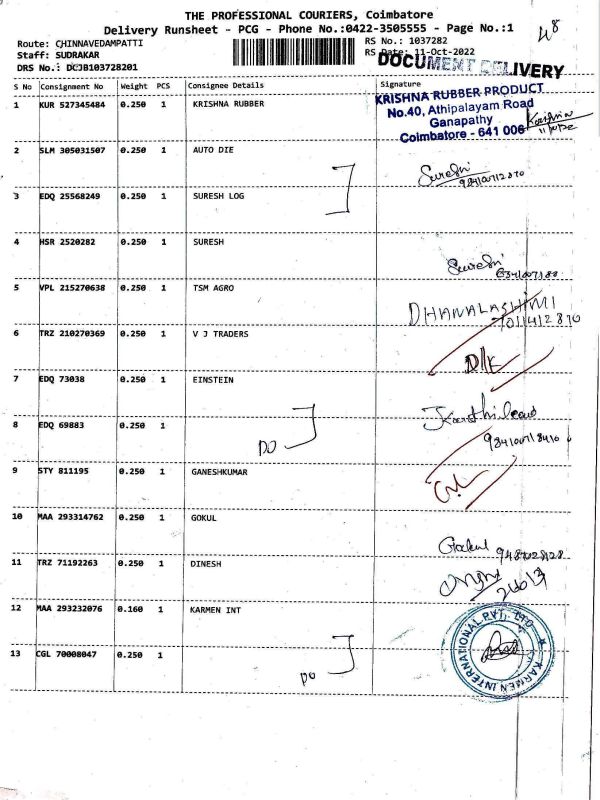 THE PROFESSIONAL COURIERS, Coimbatore
Delivery Runsheet - PCG - Phone No.:0422-3505555 - Page No.:1
48
Route: CHINNAVEDAMPATTI
RS No.: 1037282
Staff: SUDRAKAR
RS Date: 11-Oct-2022
DRS No.: DCJB103728201
DOCUMENT DELIVERY
S No Consignment No Weight PCS Consignee Details Signature
1 KUR 527345484 0.250 1 KRISHNA RUBBER
KRISHNA RUBBER PRODUCT
No.40, Athipalayam Road
Ganapathy
Coimbatore - 641 006
2 SLM 305031507 0.250 1 AUTO DIE
Suresh
3 EDQ 25568249 0.250 1 SURESH LOG
4 HSR 2520282 0.250 1 SURESH
Suresh
5 VPL 215270638 0.250 1 TSM AGRO
DHANALASHIMI
6 TRZ 210270369 0.250 1 V J TRADERS
D/K
7 EDQ 73038 0.250 1 EINSTEIN
8 EDQ 69883 0.250 1
DO
9 STY 811195 0.250 1 GANESHKUMAR
10 MAA 293314762 0.250 1 GOKUL
Gokul
11 TRZ 71192263 0.250 1 DINESH
12 MAA 293232076 0.160 1 KARMEN INT
KARMEN INTERNATIONAL PVT. LTD
13 CGL 70008047 0.250 1
DO